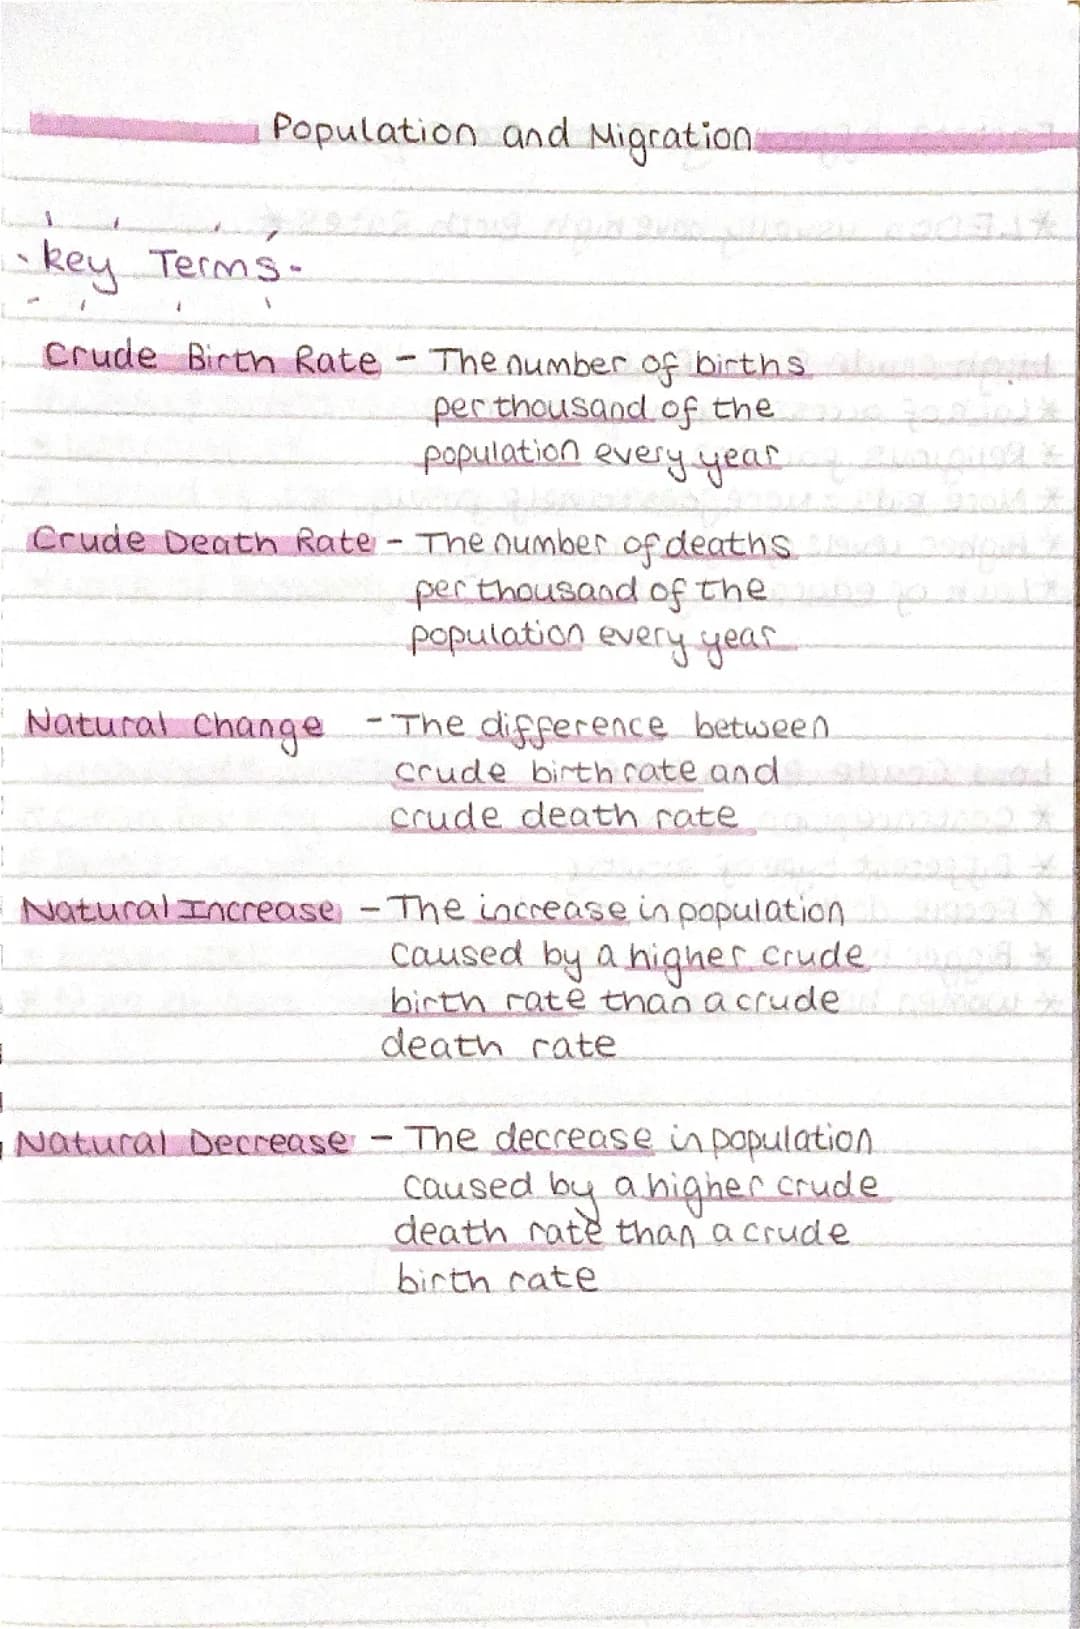 Population and Migration
Key Terms
Crude Birth Rate - The number of births
per thousand of the
population every year
Crude Death Rate - The number of deaths
per thousand of the
population every year
Natural Change - The difference between
crude birth rate and
crude death rate
Natural Increase - The increase in population
caused by a higher crude
birth rate than a crude
death rate
Natural Decrease - The decrease in population
caused by a higher crude
death rate than a crude
birth rate